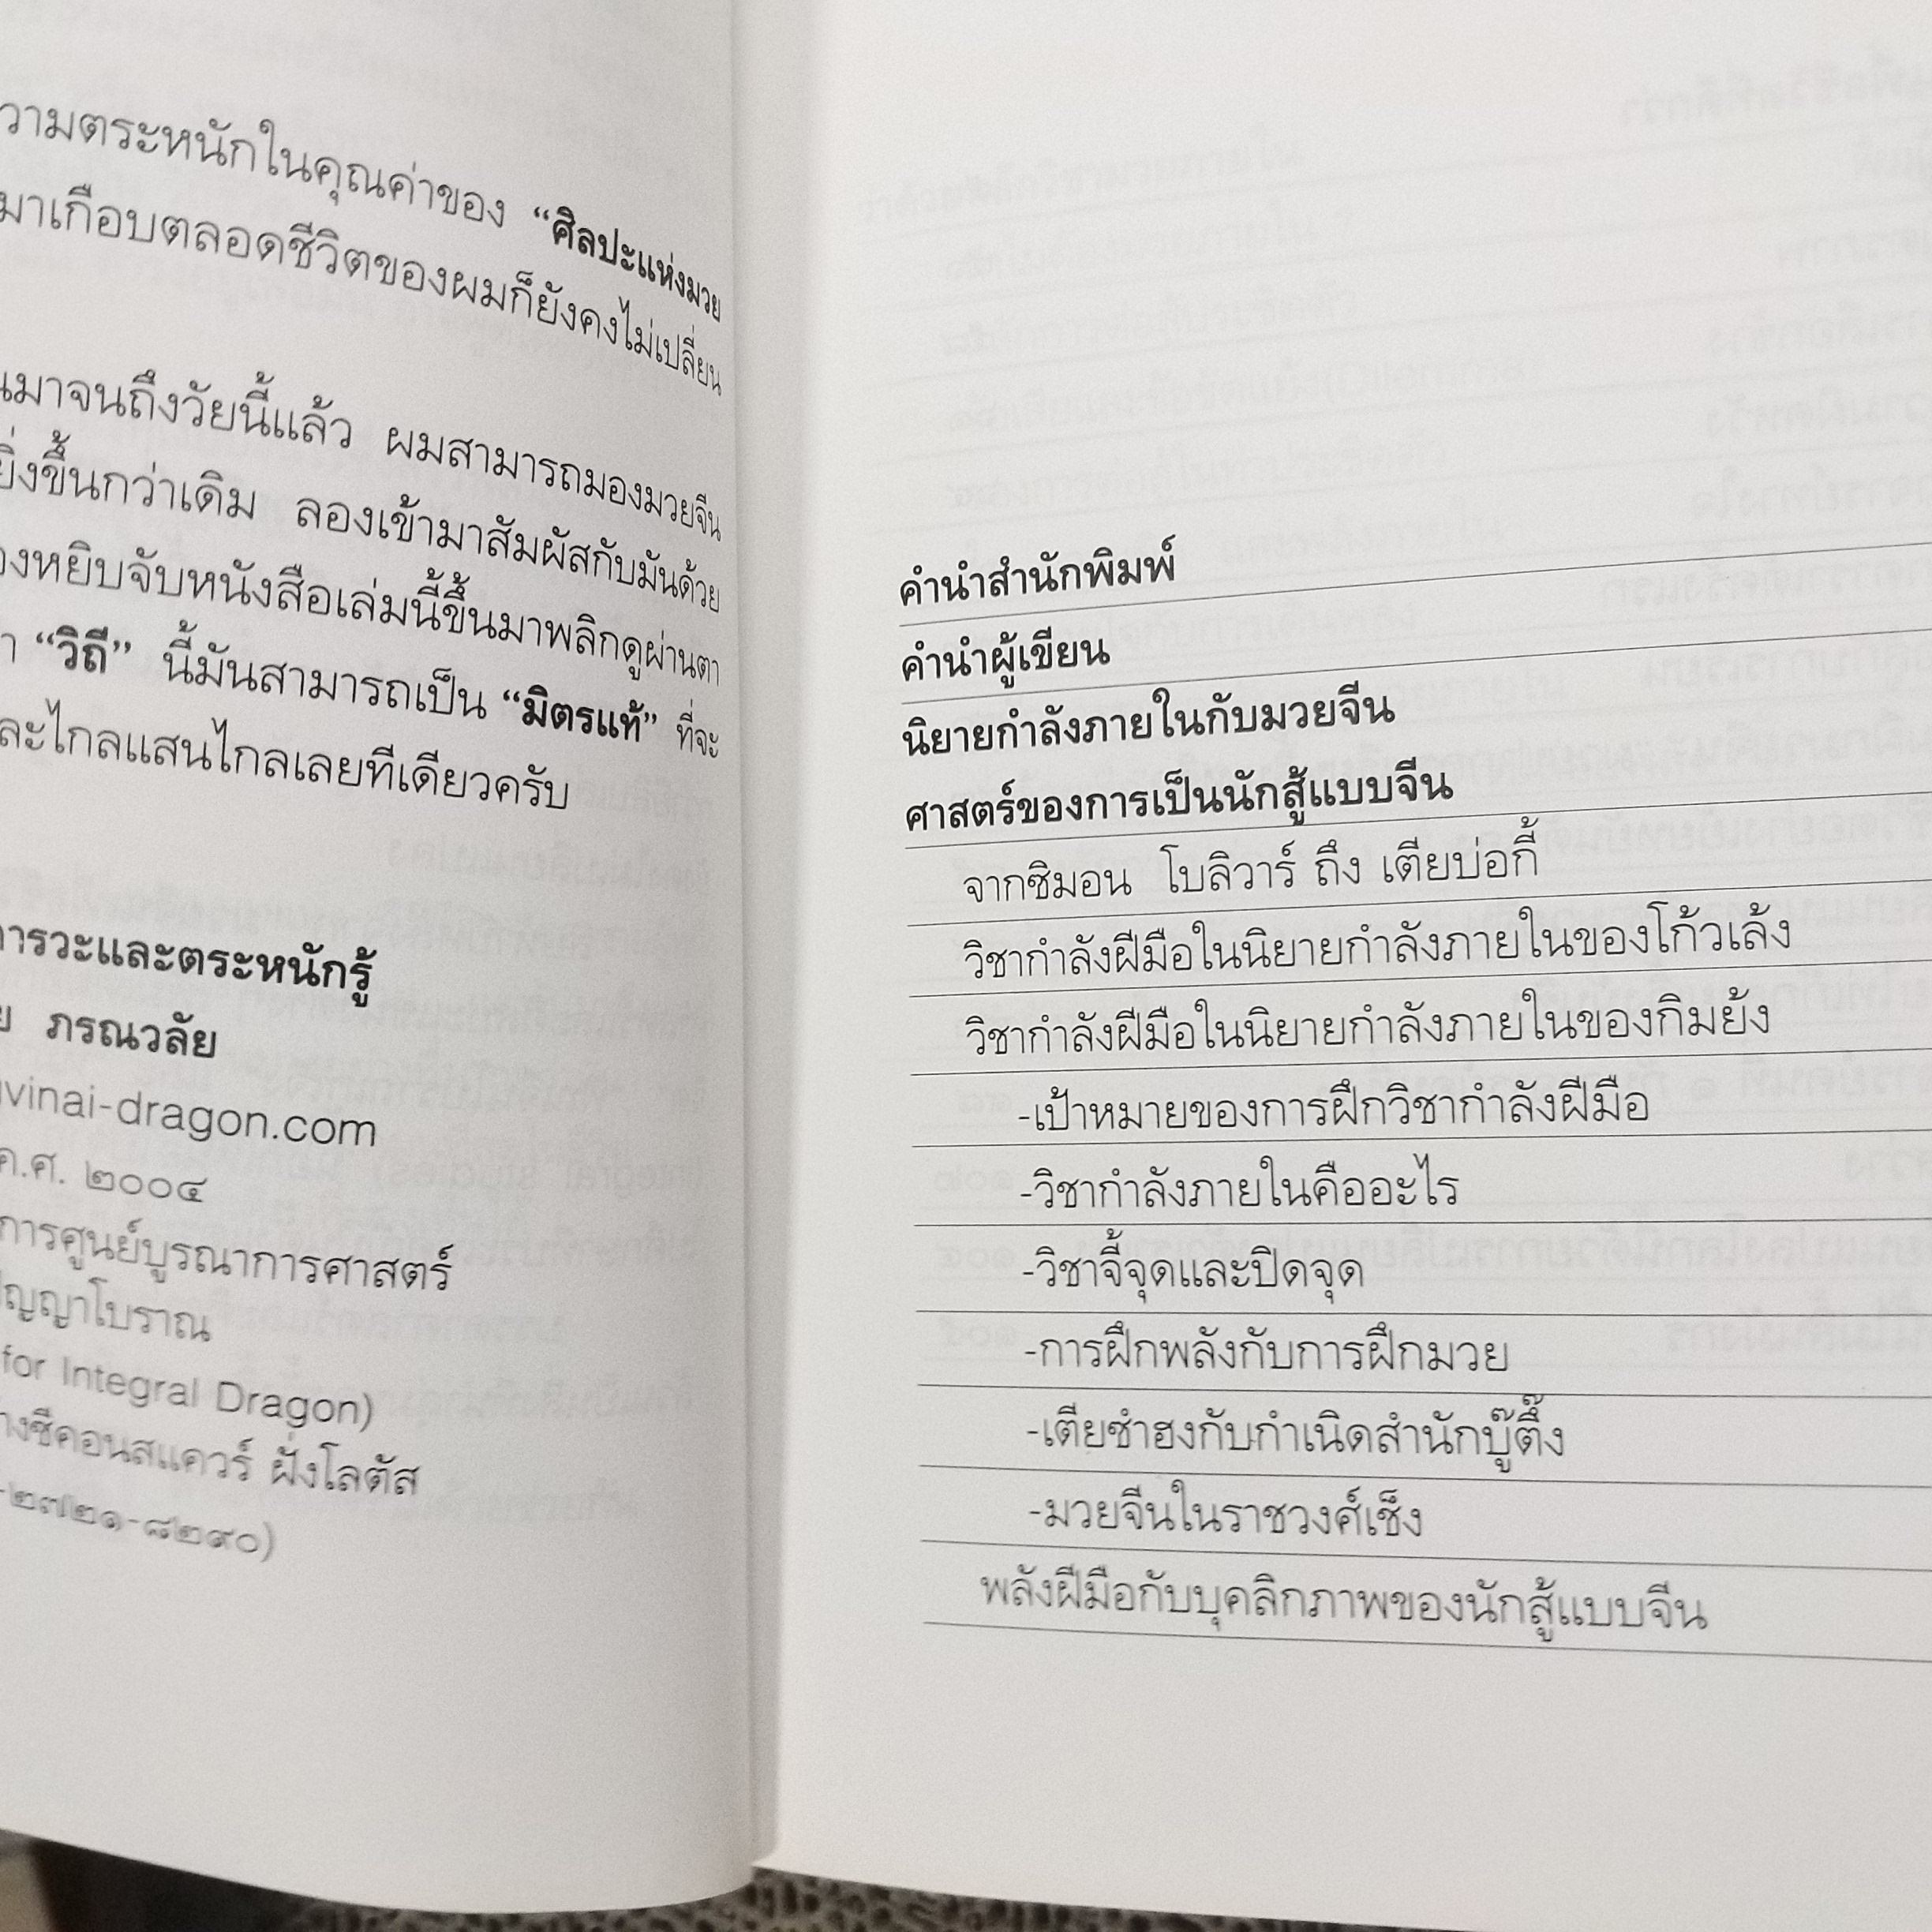 วามตระหนักในคุณค่าของ “ศิลปะแห่งมวย
มาเกือบตลอดชีวิตของผมก็ยังคงไม่เปลี่ยน
นมาจนถึงวัยนี้แล้ว ผมสามารถมองมวยจีน
ยิ่งขึ้นกว่าเดิม ลองเข้ามาสัมผัสกับมันด้วย
องหยิบจับหนังสือเล่มนี้ขึ้นมาพลิกดูผ่านตา
า “วิถี” นี้มันสามารถเป็น “มิตรแท้” ที่จะ
ละไกลแสนไกลเลยทีเดียวครับ
ารวะและตระหนักรู้
ย ภรณวลัย
uvinai-dragon.com
ค.ศ. ๒๐๐๔
การศูนย์บูรณาการศาสตร์
ปัญญาโบราณ
for Integral Dragon)
างซีคอนสแควร์ ฝั่งโลตัส
-๒๗๒๑-๘๒๙๐)
คำนำสำนักพิมพ์
คำนำผู้เขียน
นิยายกำลังภายในกับมวยจีน
ศาสตร์ของการเป็นนักสู้แบบจีน
จากซิมอน โบลิวาร์ ถึง เตียบ่อกี้
วิชากำลังฝีมือในนิยายกำลังภายในของโก้วเล้ง
วิชากำลังฝีมือในนิยายกำลังภายในของกิมย้ง
-เป้าหมายของการฝึกวิชากำลังฝีมือ
-วิชากำลังภายในคืออะไร
-วิชาจี้จุดและปิดจุด
-การฝึกพลังกับการฝึกมวย
-เตียซำฮงกับกำเนิดสำนักบู๊ตึ๊ง
-มวยจีนในราชวงศ์เช็ง
พลังฝีมือกับบุคลิกภาพของนักสู้แบบจีน